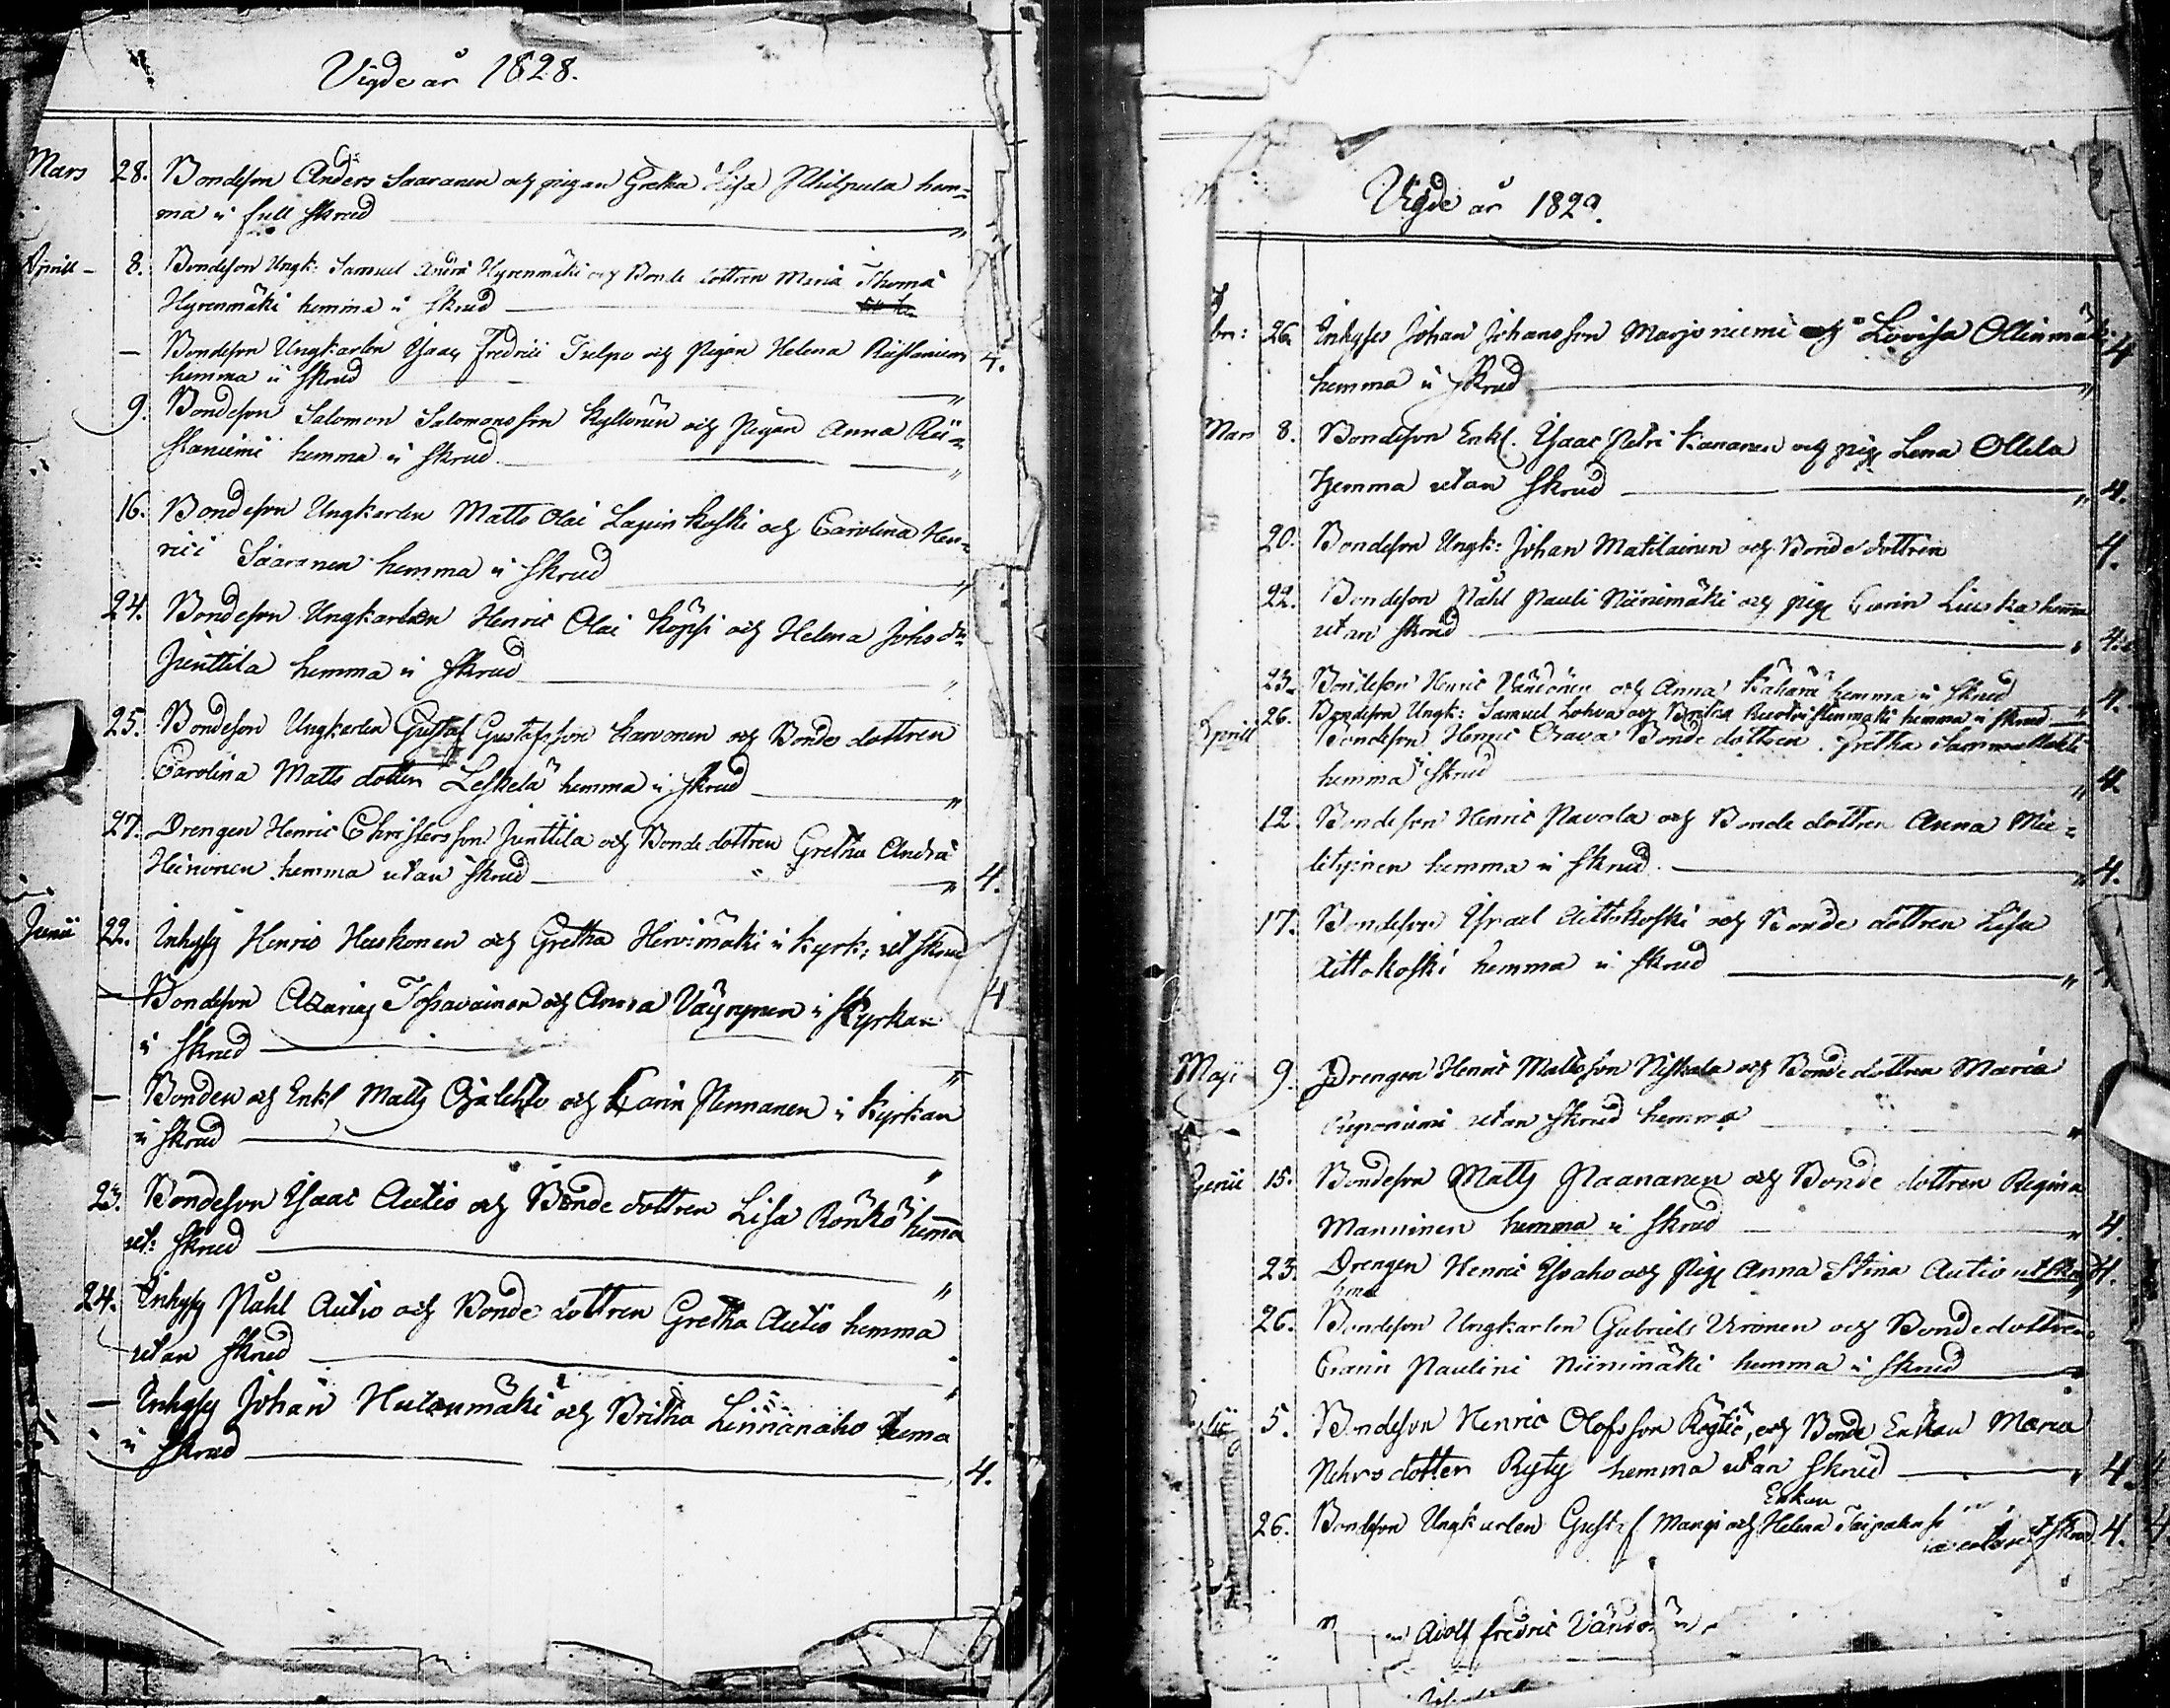 Vigde år 1828.
Mars 28. Bondeson Anders Saaranen och pigan Gretha Lisa Philpula hem-
ma i full skrud
Aprill 8. Bondeson Ungk: Samuel Andra Hyrenmäki och Bonde dottren Maria Thoma
Hyrenmäki hemma i skrud
— Bondeson Ungkarlen Isaac Fredric Tulpo och Pigan Helena Ristaniemi 4.
hemma i skrud
9. Bondeson Salomon Salomonsson Kyllönen och Pigan Anna Ri-
staniemi hemma i skrud
16. Bondeson Ungkarlen Matts Olai Lapinkoski och Carolina Hen-
rici Saaranen hemma i skrud
24. Bondeson Ungkarlen Henric Olai Köpsi och Helena Johs dr
Junttila hemma i skrud
25. Bondeson Ungkarlen Gustaf Gustafsson Karvonen och Bonde dottren
Carolina Matts dotter Leskelä hemma i skrud
27. Drengen Henric Christersson Junttila och Bonde dottren Gretha Andra
Heinonen hemma utan skrud 4.
Junii 22. Inhyss Henric Huskonen och Gretha Hervimäki i kyrk: ut skrud
— Bondeson Azarias Tossavainen och Anna Väyrynen i Kyrkan 4
i skrud
— Bonden och Enkl Matts Ojalehto och Karin Pennanen i Kyrkan
i skrud
23. Bondeson Isaac Autio och Bonde dottren Lisa Rönkö hemma
ut: skrud
24. Inhyss Påhl Autio och Bonde dottren Gretha Autio hemma
utan skrud
— Inhyss Johan Hutanmäki och Britha Linnanaho hema
i skrud 4.
Vigde år 1829.
br: 26. Inhyses Johan Johansson Marjoniemi och Lovisa Ollinmäki 4
hemma i skrud
Mars 8. Bondeson Enkl. Isaac Petri Kananen och pig Lena Ollila
hemma utan skrud 4.
20. Bondeson Ungk: Johan Matilainen och Bonde dottren 4.
22. Bondeson Påhl Pauli Niinimäki och pig Carin Liuska hemma
utan skrud 4.
23. Bondeson Henric Väisänen och Anna Kähärä hemma i skrud 4.
26. Bondeson Ungk: Samuel Lohva och Britha hemma i skrud
Aprill Bondeson Henric Orava Bonde dottren Gretha Sammallahti
hemma skrud 4
12. Bondeson Henric Pavola och Bonde dottren Anna Mie-
litynen hemma i skrud 4.
17. Bondeson Israel Aittokoski och Bonde dottren Lisa
Aittokoski hemma i skrud
Maji 9. Drengen Henric Mattsson Niskala och Bonde dottren Maria
utan skrud hemma
Junii 15. Bondeson Matts Paananen och Bonde dottren Regina
Manninen hemma i skrud 4.
23. Drengen Henric Isoaho och Pig Anna Stina Autio ut skrud 4.
hema
26. Bondeson Ungkarlen Gabriels Uronen och Bonde dottren
Carin Paulini Niinimäki hemma i skrud
5. Bondeson Henric Olofsson och Bonde Enkan Maria
Nehrs dotter Ryty hemma utan skrud 4.
Enkan
26. Bondeson Ungkarlen Gustaf Mangi och Helena skrud 4.
Adolf Fredric